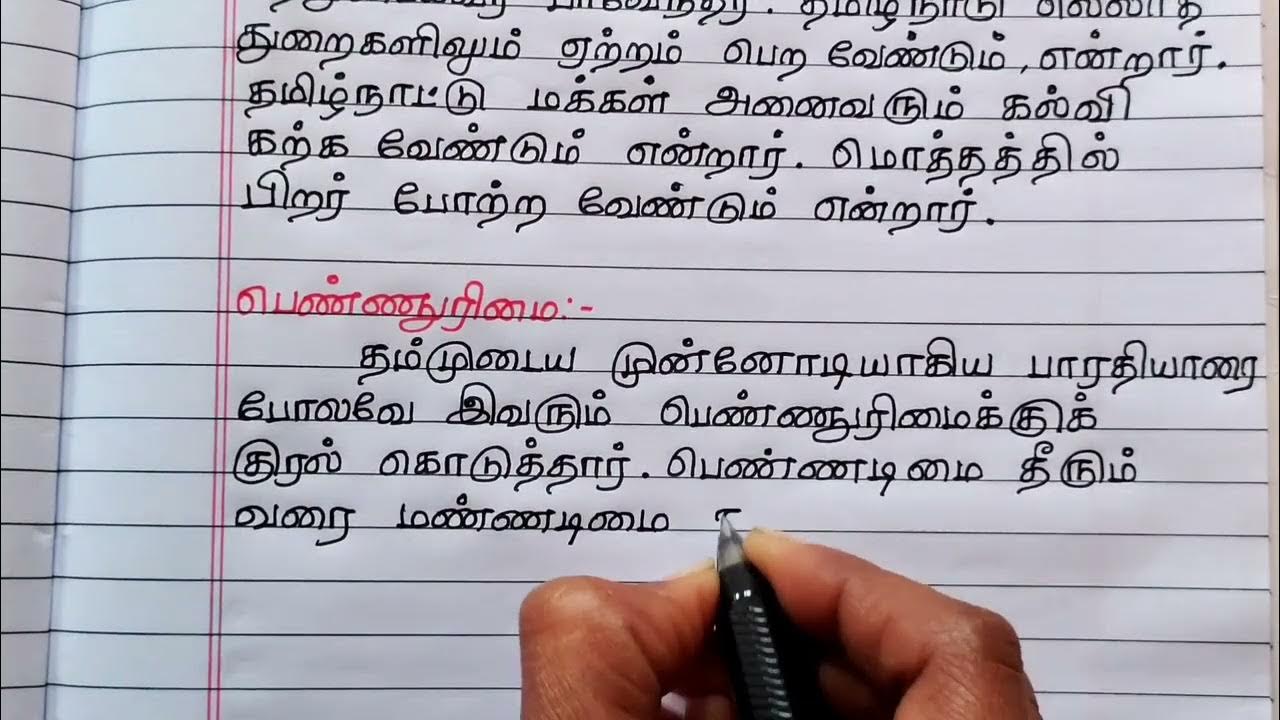 பாவேந்தர். தமிழ்நாடு எல்லாத்
துறைகளிலும் ஏற்றம் பெற வேண்டும், என்றார்.
தமிழ்நாட்டு மக்கள் அனைவரும் கல்வி
கற்க வேண்டும் என்றார். மொத்தத்தில்
பிறர் போற்ற வேண்டும் என்றார்.
பெண்ணுரிமை:-
தம்முடைய முன்னோடியாகிய பாரதியாரை
போலவே இவரும் பெண்ணுரிமைக்குக்
குரல் கொடுத்தார். பெண்ணடிமை தீரும்
வரை மண்ணடிமை